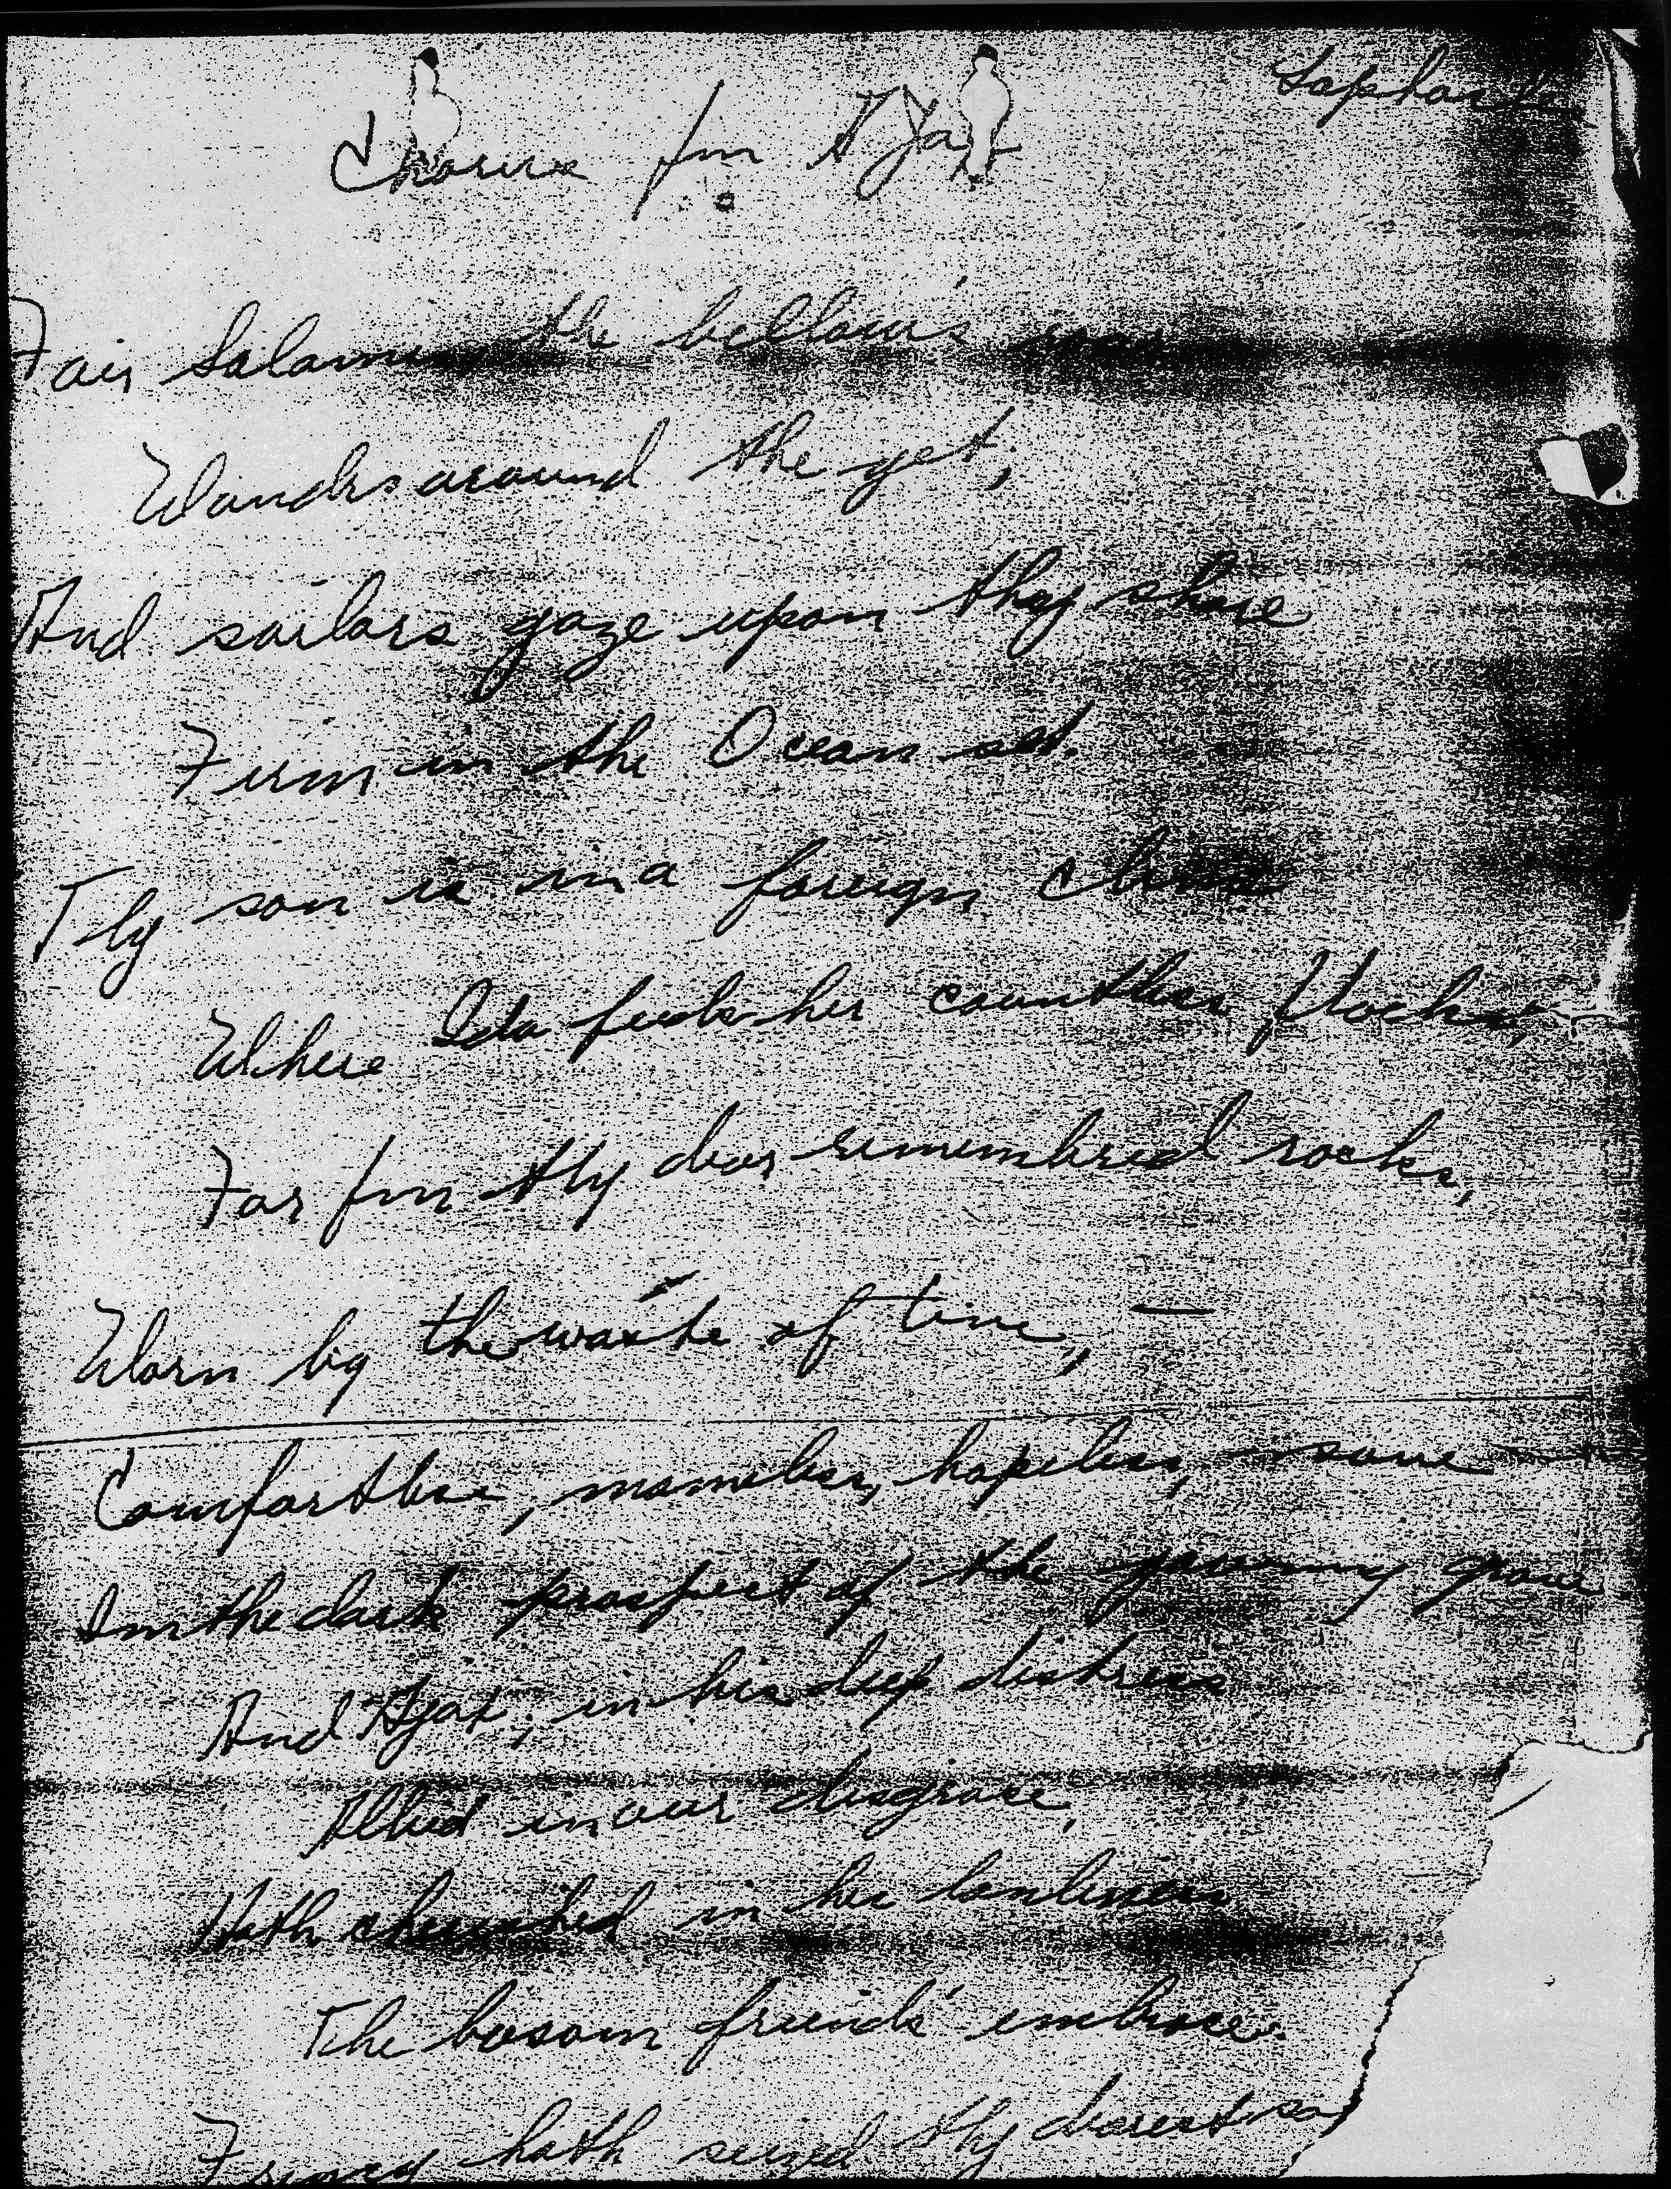 Sophocles
Chorus fm AJax
Fair Salamis the bellow's roar
Wanders around the yet,
And sailors gaze upon thy shore
Firm in the Ocean set.
Thy son is in a foreign clime
Where Ida feeds her countless flocks,
Far fm thy dear remembered rocks,
Worn by the waste of time, —
Comfortless, nameless, hopeless, save
In the dark prospect of the yawning grave
And Ajax, in his deep distress
Allied in our disgrace,
Hath cherished in his lonliness
The bosom friend's embrace.
Frenzy hath seized thy dearest so